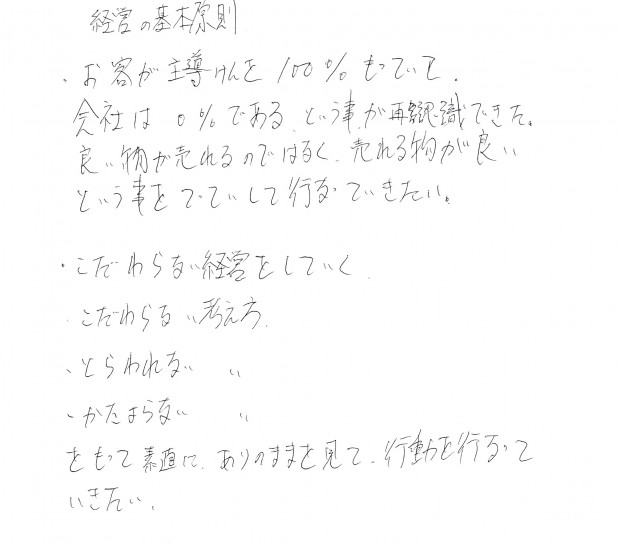 経営の基本原則
・お客が主導けんを100%もっていて、
会社は0%である、という事が再認識できた。
良い物が売れるのではなく、売れる物が良い
という事をてっていして行なっていきたい。
・こだわらない経営をしていく
・こだわらない考え方、
・とらわれない 〃
・かたまらない 〃
をもって素直に、ありのままを見て、行動を行なって
いきたい。